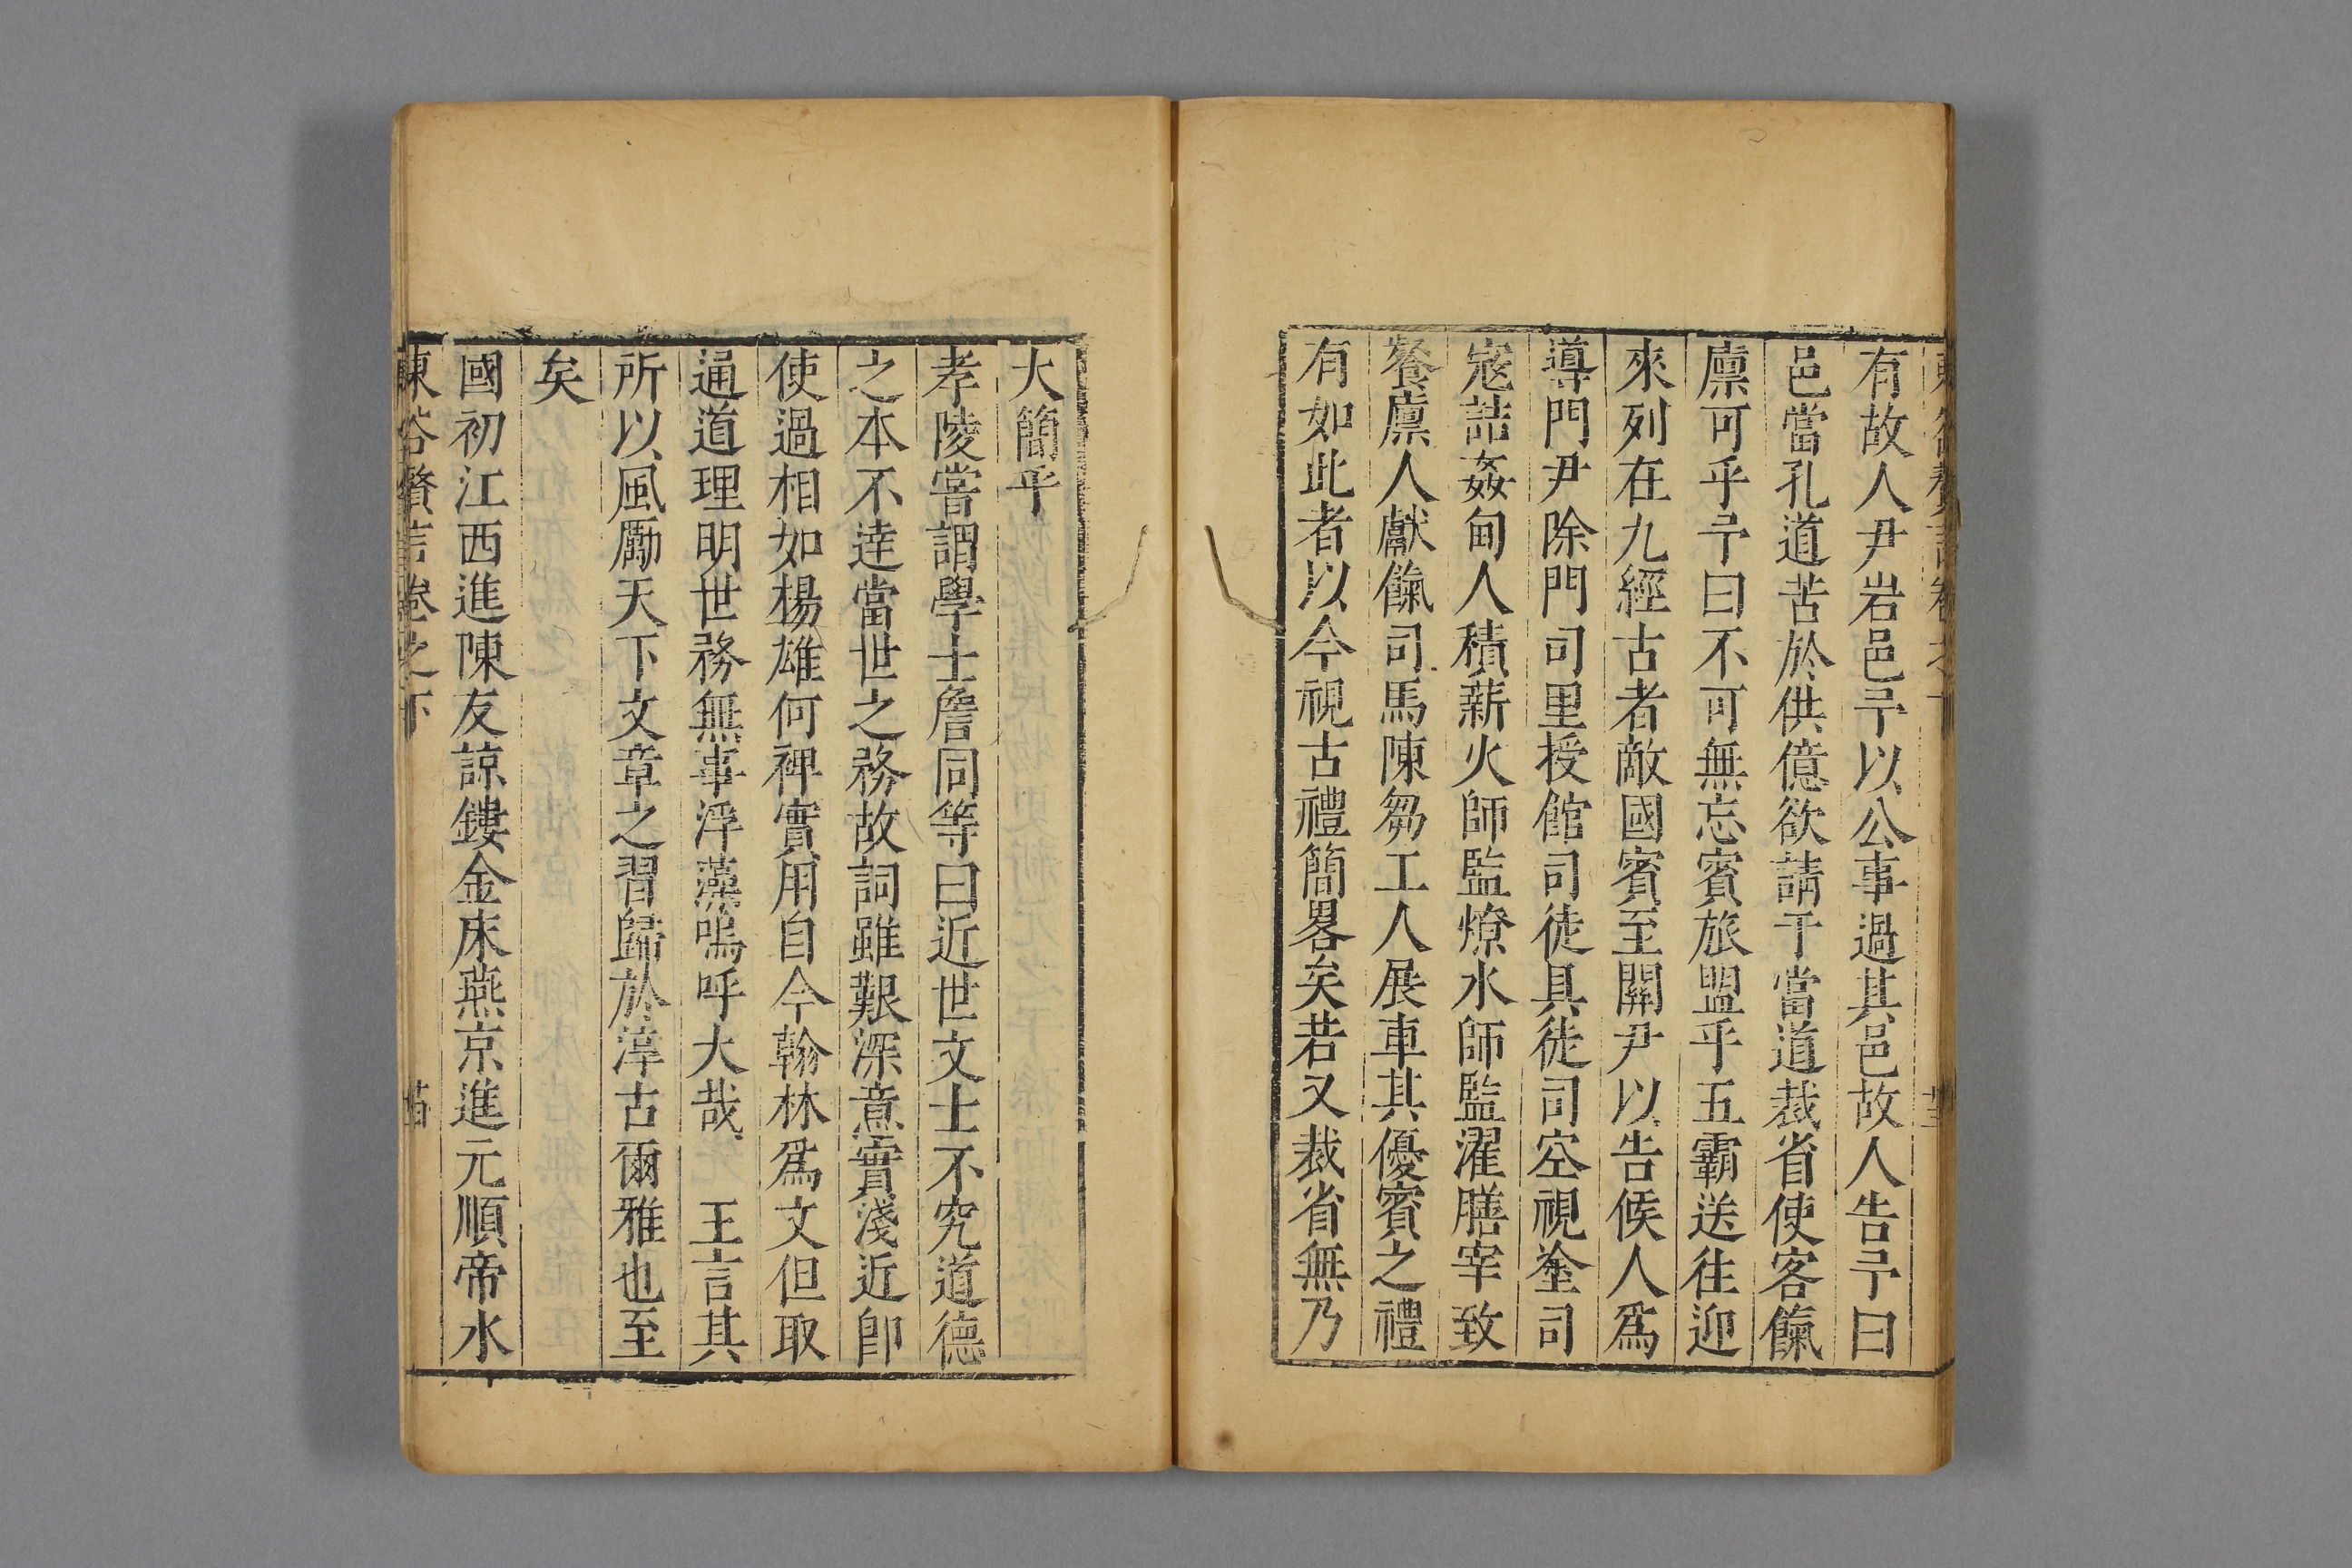 有故人尹岩邑予以公事過其邑故人告予曰
邑當孔道苦於供億欲請干當道裁省使客餼
廩可乎予曰不可無忘賓旅盟乎五霸送往迎
來列在九經古者敵國賓至關尹以告候人爲
導門尹除門司里授館司徒具徒司空視塗司
寇詰姦甸人積薪火師監燎水師監濯膳宰致
餐廩人獻餼司馬陳芻工人展車其優賓之禮
有如此者以今視古禮簡畧矣若又裁省無乃
大簡乎
孝陵嘗謂學士詹同等曰近世文士不究道德
之本不逹當世之務故詞雖艱深意實淺近卽
使過相如楊雄何裨實用自今翰林爲文但取
通道理明世務無事浮藻嗚呼大哉　王言其
所以風勵天下文章之習歸於淳古爾雅也至
矣
國初江西進陳友諒鏤金床燕京進元順帝水
東谷贅言卷之下